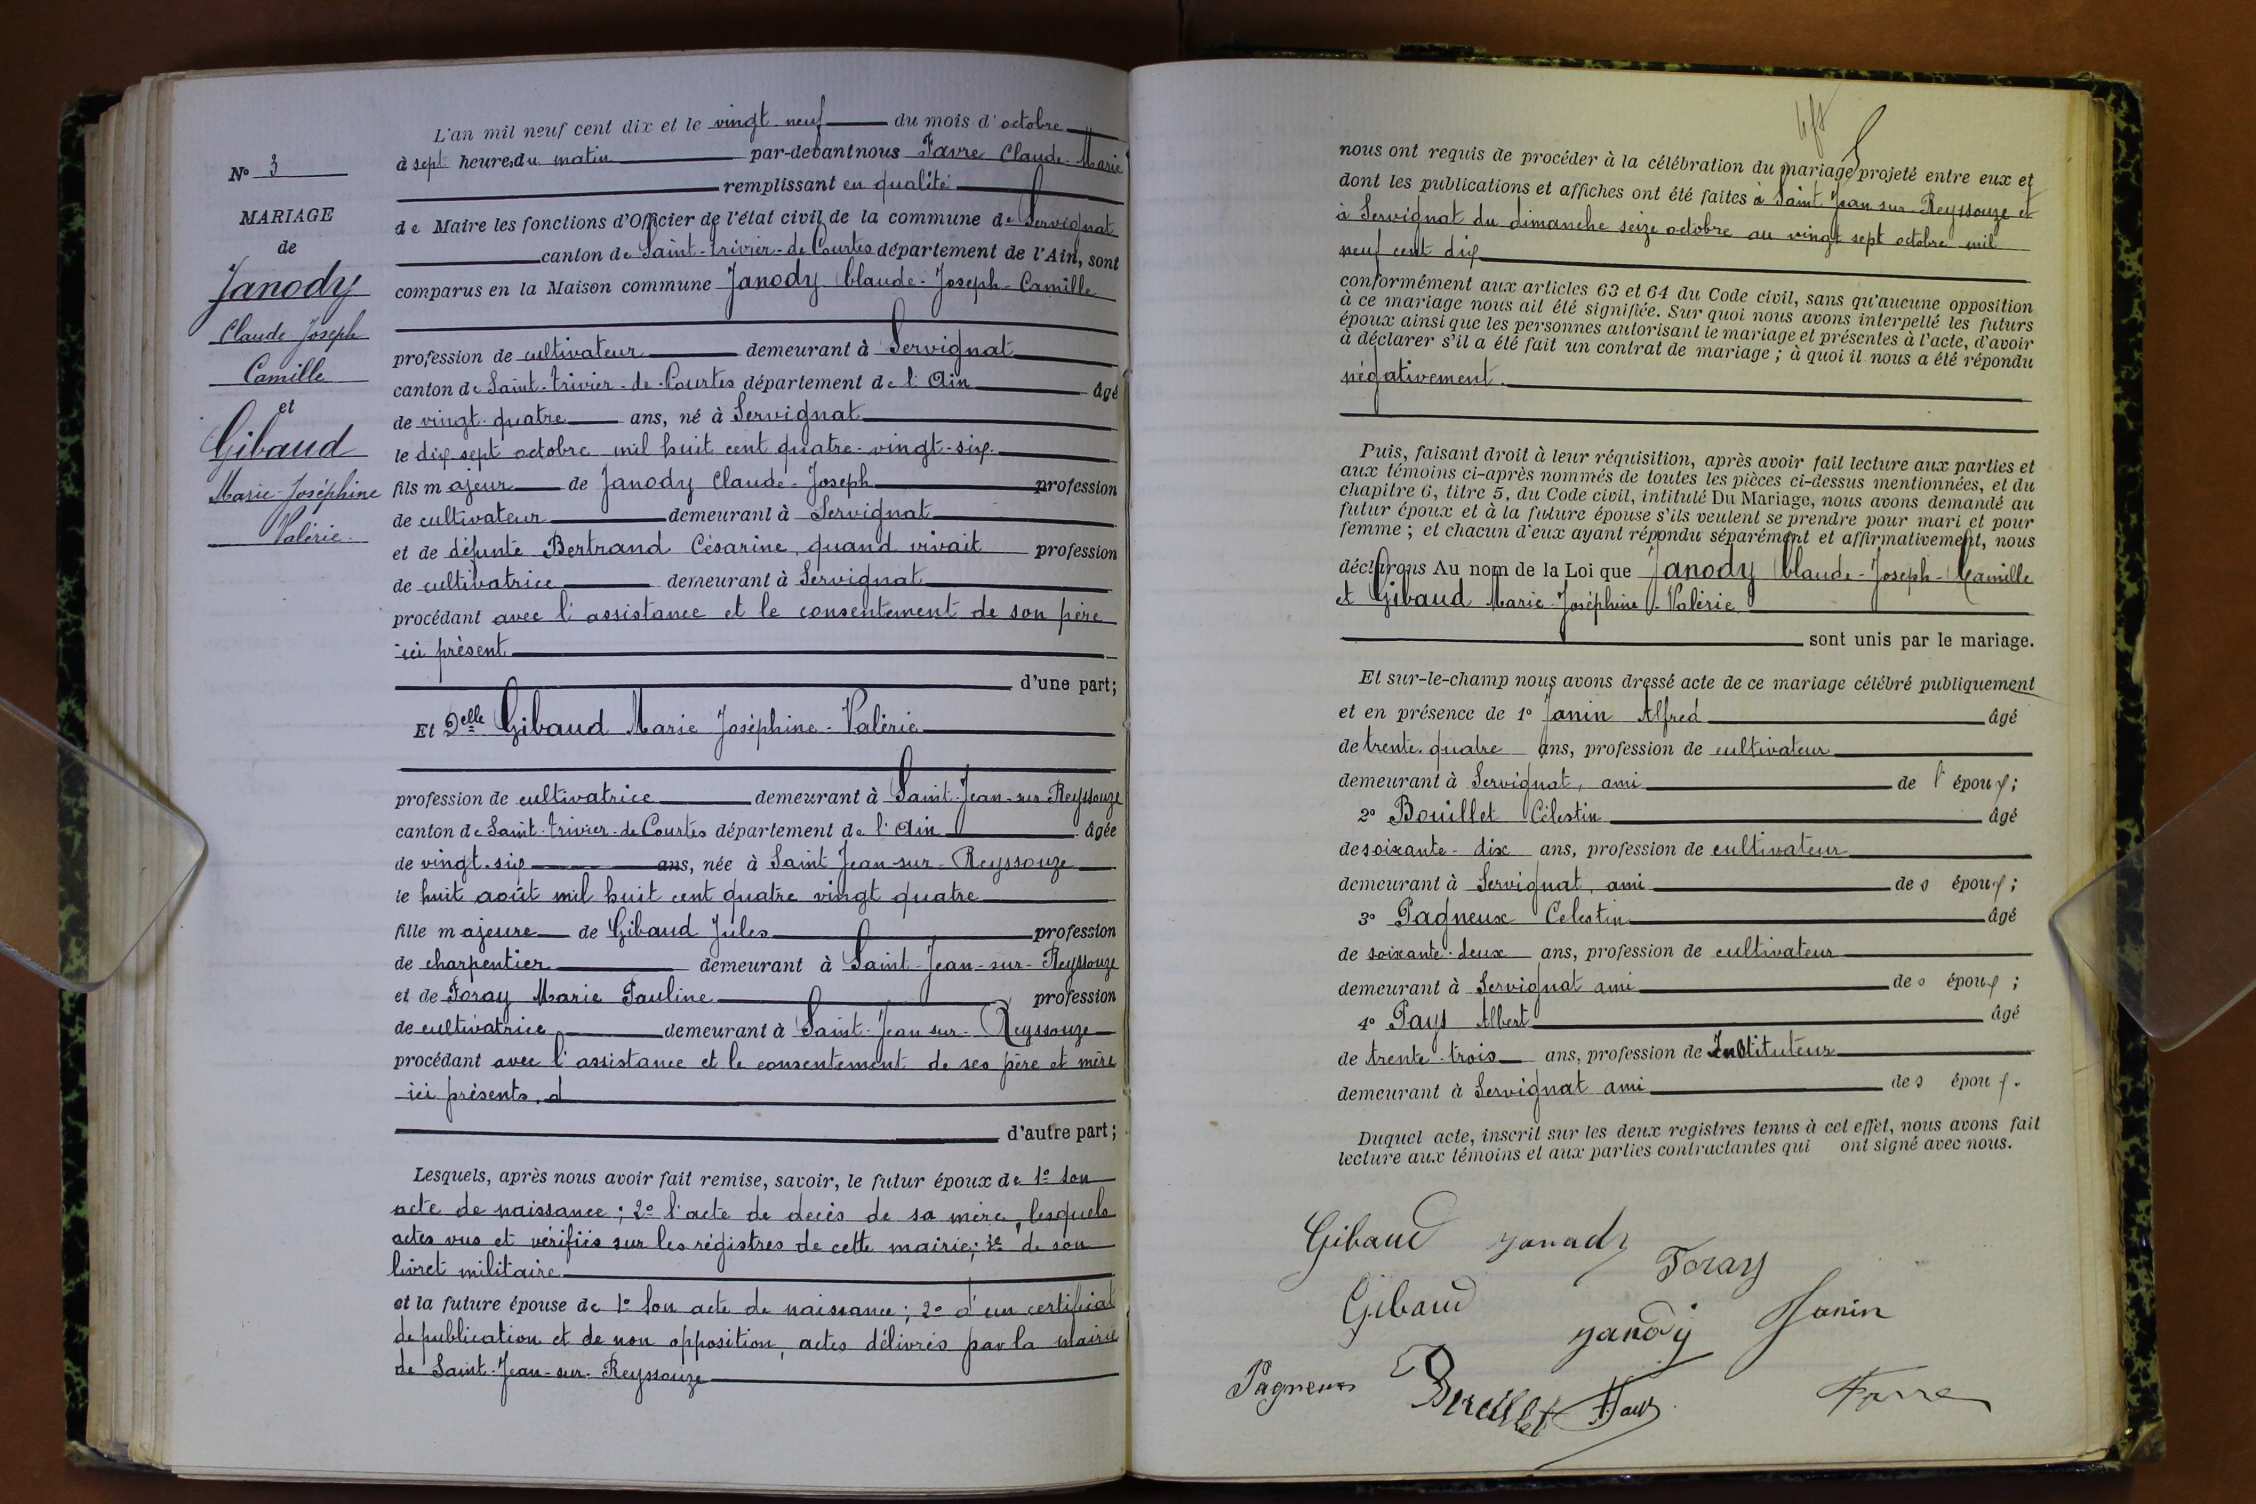 L'an mil neuf cent dix et le vingt neuf du mois d'octobre
à sept heures du matin par-devant nous Favre Claude-Marie
remplissant en qualité
de Maire les fonctions d'Officier de l'état civil de la commune de Servignat
canton de Saint-Trivier-de-Courtes département de l'Ain, sont
comparus en la Maison commune Janody Claude-Joseph-Camille
profession de cultivateur demeurant à Servignat
canton de Saint-Trivier-de-Courtes département de l'Ain âgé
de vingt-quatre ans, né à Servignat
le dix sept octobre mil huit cent quatre-vingt-six
fils majeur de Janody Claude-Joseph profession
de cultivateur demeurant à Servignat
et de défunte Bertrand Césarine, quand vivait profession
de cultivatrice demeurant à Servignat
procédant avec l'assistance et le consentement de son père
ici présent
d'une part;
Et Delle Gibaud Marie Joséphine-Valérie
profession de cultivatrice demeurant à Saint-Jean-sur-Reyssouze
canton de Saint-Trivier-de-Courtes département de l'Ain âgée
de vingt-six ans, née à Saint Jean-sur-Reyssouze
le huit août mil huit cent quatre vingt quatre
fille majeure de Gibaud Jules profession
de charpentier demeurant à Saint-Jean-sur-Reyssouze
et de Foray Marie Pauline profession
de cultivatrice demeurant à Saint-Jean sur-Reyssouze
procédant avec l'assistance et le consentement de ses père et mère
ici présents, d
d'autre part;
Lesquels, après nous avoir fait remise, savoir, le futur époux de 1º son
acte de naissance; 2º l'acte de decès de sa mère, lesquels
actes vus et vérifiés sur les régistres de cette mairie; 3e de son
livret militaire
et la future épouse de 1º son acte de naissance; 2º d'un certificat
de publication et de non opposition, actes délivrés par la mairie
de Saint-Jean-sur-Reyssouze
Nº 3
MARIAGE
de
Janody
Claude-Joseph
Camille
et
Gibaud
Marie-Joséphine
Valérie.
nous ont requis de procéder à la célébration du mariage projeté entre eux et
dont les publications et affiches ont été faites à Saint Jean sur Reyssouze et
à Servignat du dimanche seize octobre au vingt sept octobre mil
neuf cent dix
conformément aux articles 63 et 64 du Code civil, sans qu'aucune opposition
à ce mariage nous ait été signifiée. Sur quoi nous avons interpellé les futurs
époux ainsi que les personnes autorisant le mariage et présentes à l'acte, d'avoir
à déclarer s'il a été fait un contrat de mariage; à quoi il nous a été répondu
négativement.
Puis, faisant droit à leur réquisition, après avoir fait lecture aux parties et
aux témoins ci-après nommés de toutes les pièces ci-dessus mentionnées, et du
chapitre 6, titre 5, du Code civil, intitulé Du Mariage, nous avons demandé au
futur époux et à la future épouse s'ils veulent se prendre pour mari et pour
femme; et chacun d'eux ayant répondu séparément et affirmativement, nous
déclarons Au nom de la Loi que Janody Claude-Joseph-Camille
et Gibaud Marie-Joséphine-Valérie
sont unis par le mariage.
Et sur-le-champ nous avons dressé acte de ce mariage célébré publiquement
et en présence de 1º Janin Alfred âgé
de trente-quatre ans, profession de cultivateur
demeurant à Servignat, ami de l'époux;
2º Bouillet Célestin âgé
de soixante-dix ans, profession de cultivateur
demeurant à Servignat, ami des époux;
3º Pagneux Celestin âgé
de soixante-deux ans, profession de cultivateur
demeurant à Servignat ami des époux;
4º Pays Albert âgé
de trente-trois ans, profession de Instituteur
demeurant à Servignat ami des époux.
Duquel acte, inscrit sur les deux registres tenus à cet effet, nous avons fait
lecture aux témoins et aux parties contractantes qui ont signé avec nous.
Gibaud Janody
Foray
Gibaud
Janody
Janin
Pagneux
Bouillet
A. Pays
Favre